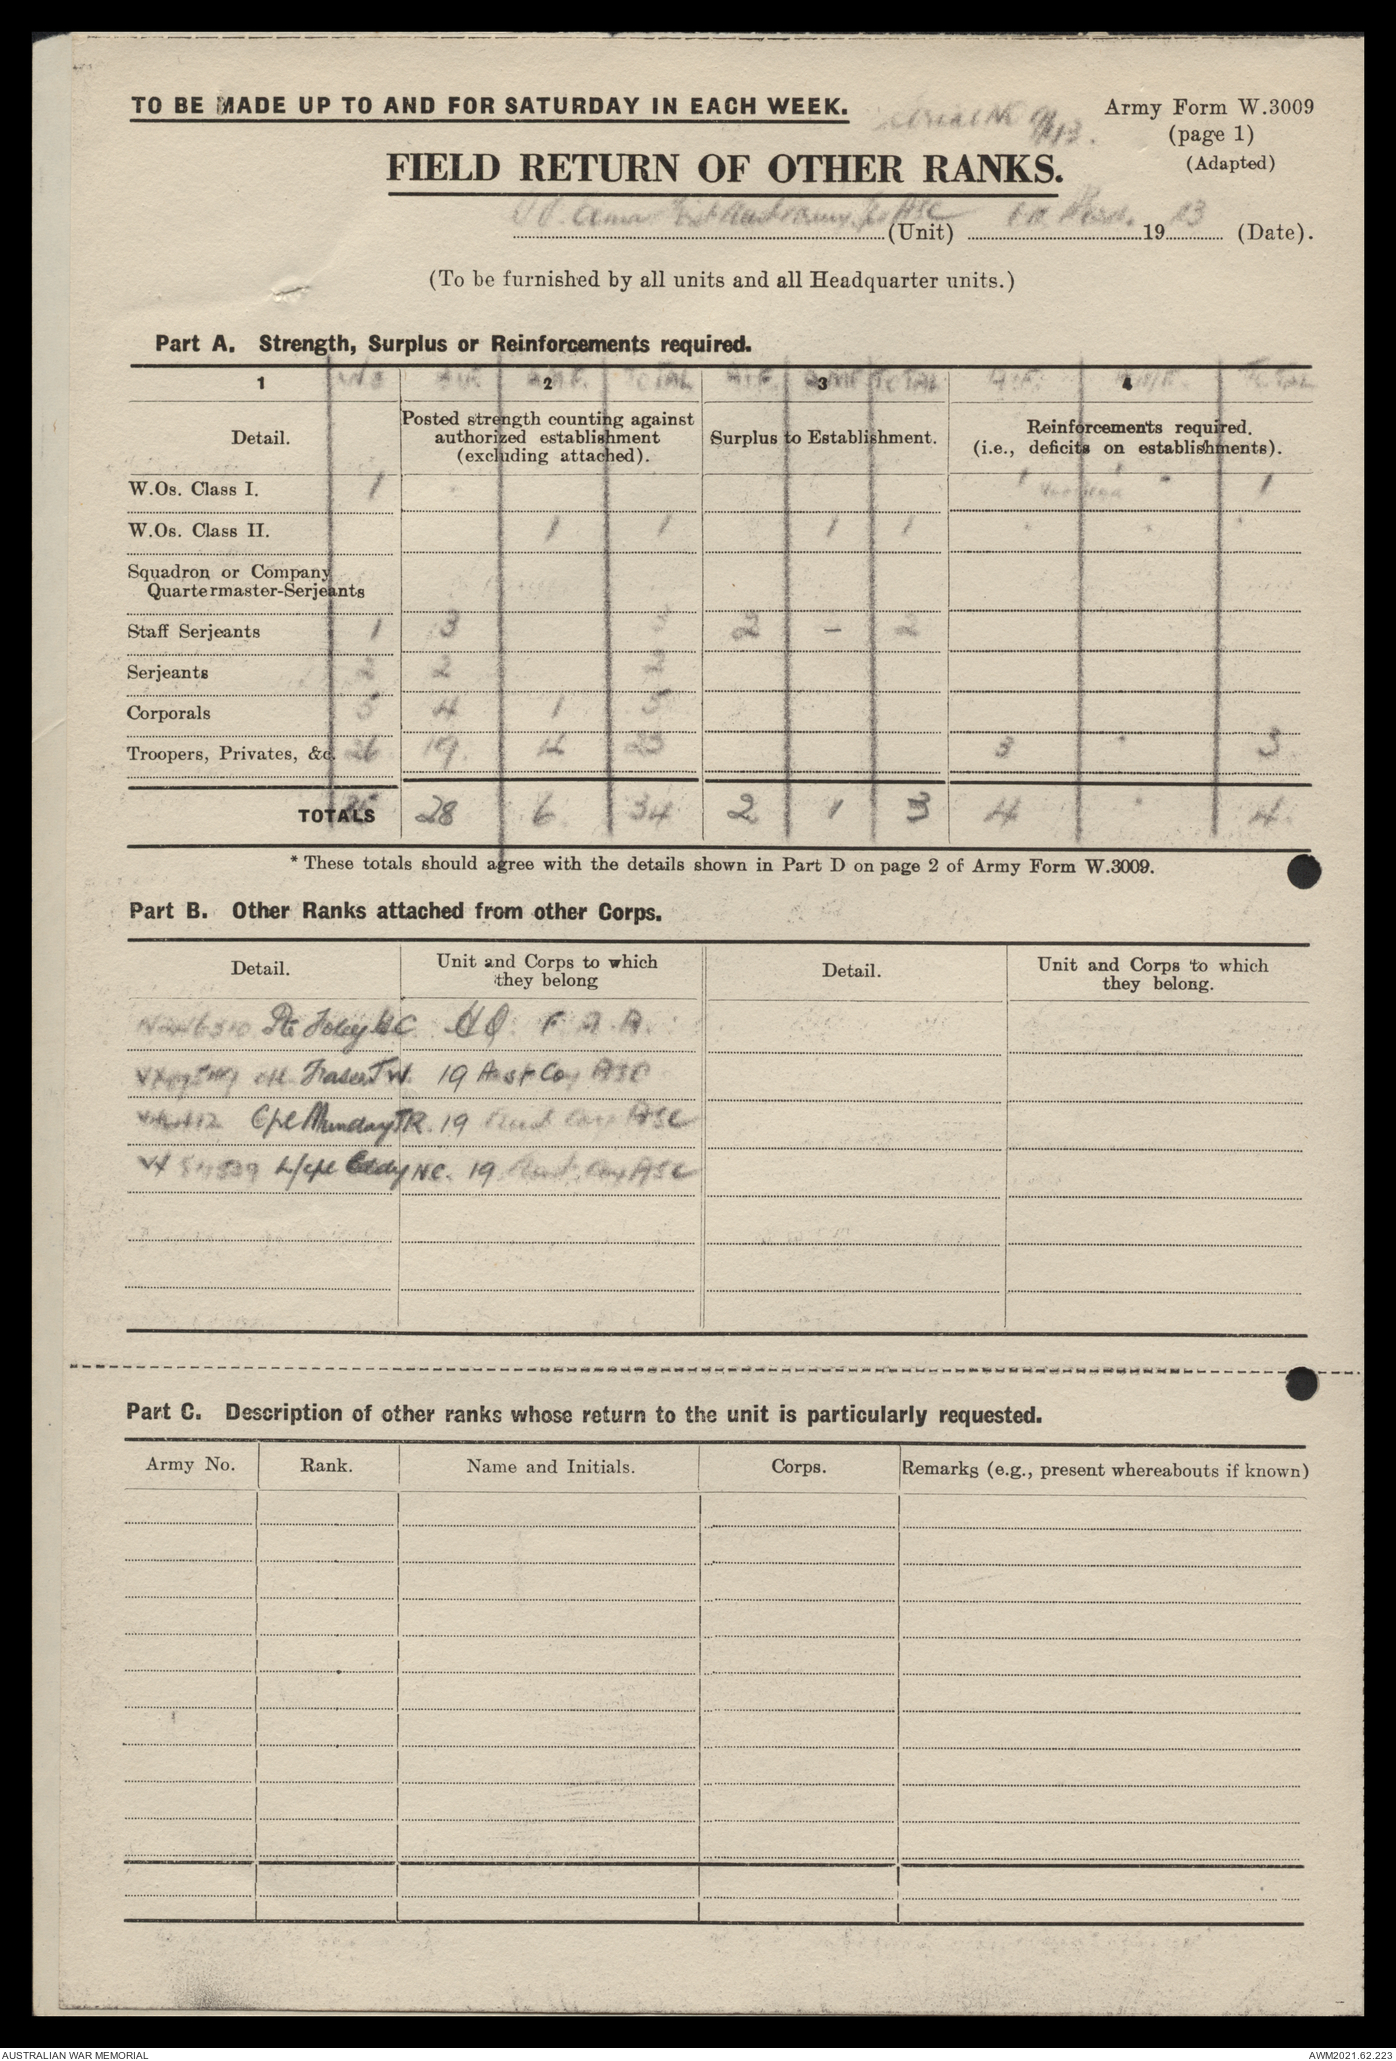 TO BE MADE UP TO AND FOR SATURDAY IN EACH WEEK.
Army Form W.3009
(page 1)
(Adapted)
FIELD RETURN OF OTHER RANKS.
(Unit) 19 (Date).
(To be furnished by all units and all Headquarter units.)
Part A. Strength, Surplus or Reinforcements required.
1 2 TOTAL 3 TOTAL 4 TOTAL
Detail.
Posted strength counting against authorized establishment (excluding attached).
Surplus to Establishment.
Reinforcements required. (i.e., deficits on establishments).
W.Os. Class I. 1 1
W.Os. Class II. 1 1 1 1
Squadron or Company
Quartermaster-Serjeants
Staff Serjeants 1 3 3 2 - 2
Serjeants 2 2 2
Corporals 5 4 1 5
Troopers, Privates, &c. 26 19 4 23 3 3
TOTALS 28 6 34 2 1 3 4 4
* These totals should agree with the details shown in Part D on page 2 of Army Form W.3009.
Part B. Other Ranks attached from other Corps.
Detail.
Unit and Corps to which they belong
Detail.
Unit and Corps to which they belong.
Pte Foley
Fraser 19 Aust Coy ASC
Cpl Munday 19 Aust Coy ASC
L/Cpl Eddy N.C. 19 Aust Coy ASC
Part C. Description of other ranks whose return to the unit is particularly requested.
Army No. Rank. Name and Initials. Corps. Remarks (e.g., present whereabouts if known)
AUSTRALIAN WAR MEMORIAL
AWM2021.62.223